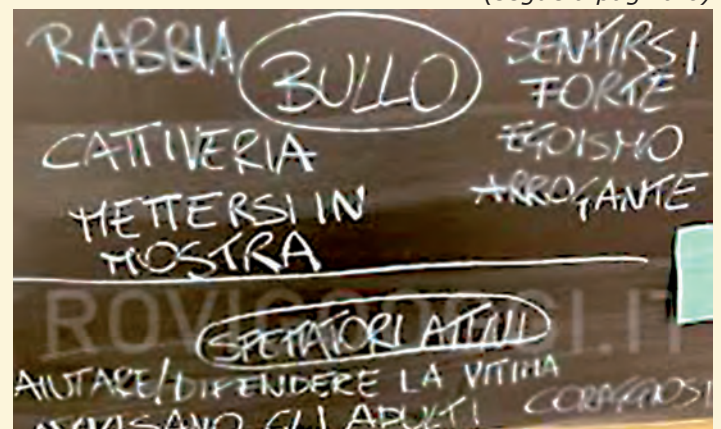 RABBIA
BULLO
SENTIRSI
FORTE
CATTIVERIA
EGOISMO
METTERSI IN
MOSTRA
ARROGANTE
ROVIGOOGGI.IT
SPETTATORI ATTIVI
AIUTARE/DIFENDERE LA VITTIMA
CORAGGIOSI
AVVISANO GLI ADULTI